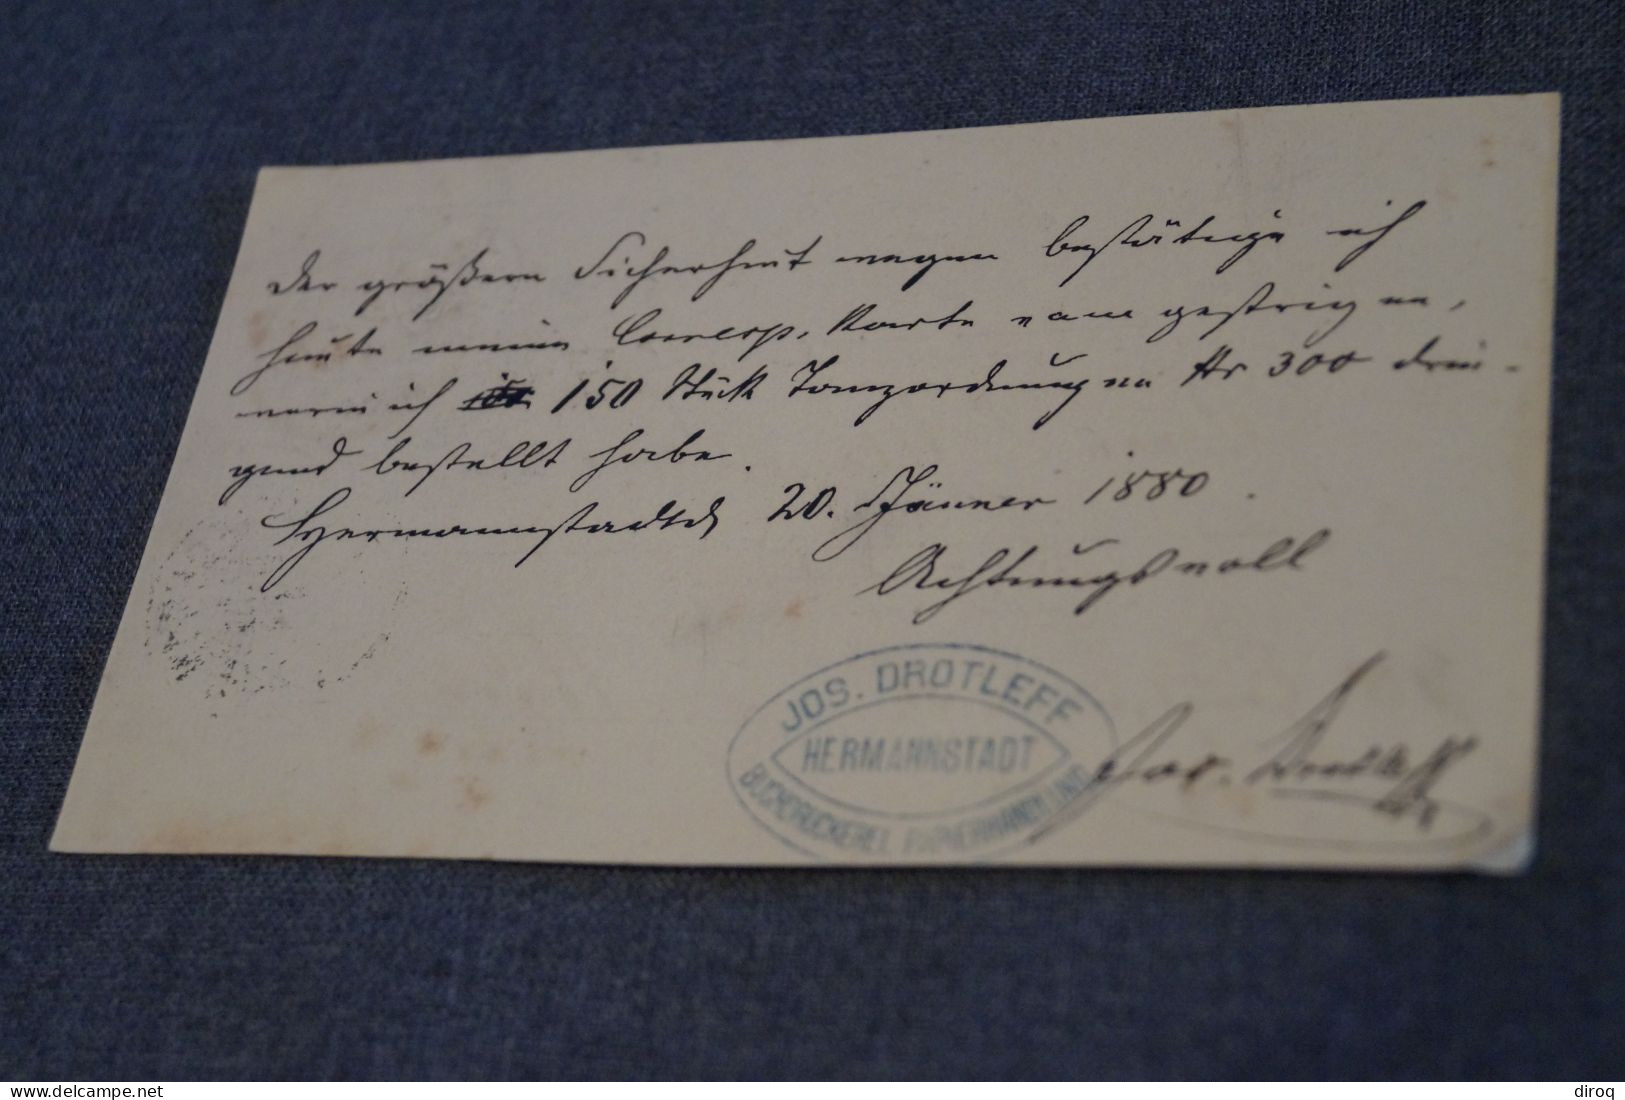 Der größern Sicherheit wegen bestätige ich
heute meine Corresp. Karte vom gestrigen,
worin ich 150 Stück Tanzordnungen Nr 300 drin-
gend bestellt habe.
Hermannstadt 20. Jänner 1880.
Achtungsvoll
JOS. DROTLEFF
HERMANNSTADT
BUCHDRUCKEREI, PAPIERHANDLUNG
Jos. Drotleff
delcampe.net
diroq